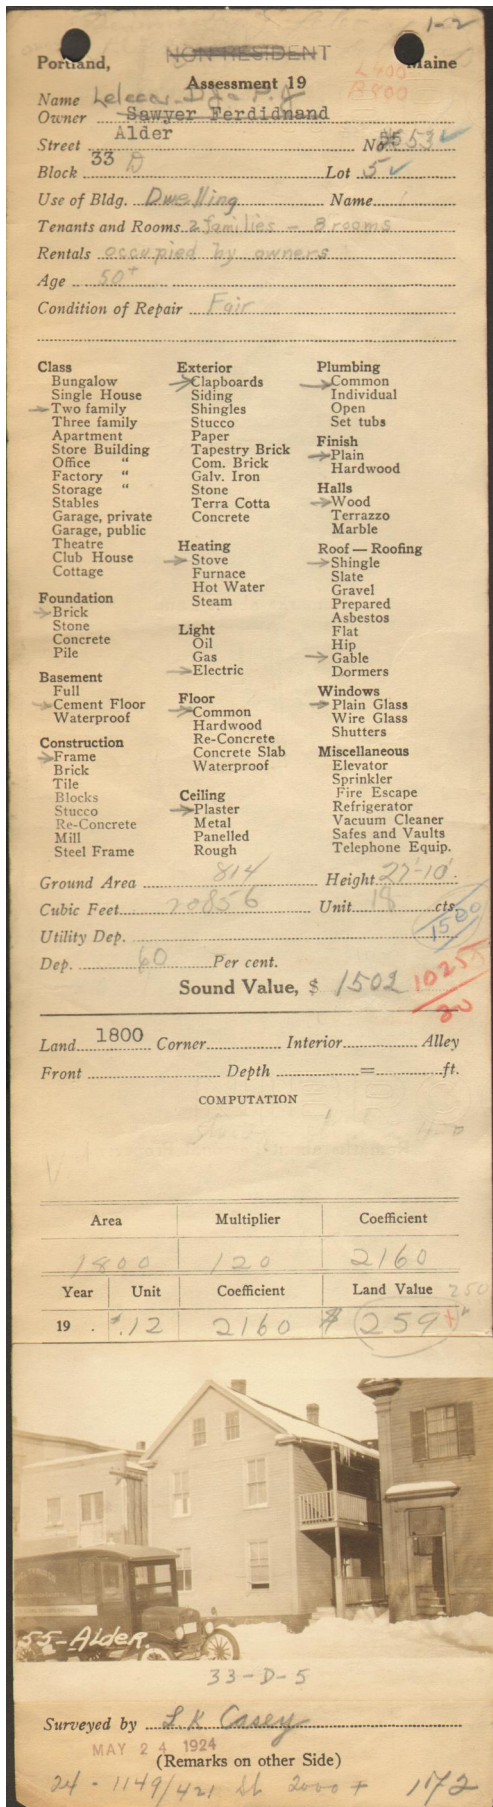 1-2
NON RESIDENT
Portland, Maine
L 400
B 800
Assessment 19
Name
Owner Sawyer Ferdidnand
Street Alder No. 55 53 ✓
Block 33 D Lot 5 ✓
Use of Bldg. Dwelling Name
Tenants and Rooms 2 families - 8 rooms
Rentals occupied by owners
Age 50+
Condition of Repair Fair
Class
Bungalow
Single House
→ Two family
Three family
Apartment
Store Building
Office "
Factory "
Storage "
Stables
Garage, private
Garage, public
Theatre
Club House
Cottage
Foundation
→ Brick
Stone
Concrete
Pile
Basement
Full
→ Cement Floor
Waterproof
Construction
→ Frame
Brick
Tile
Blocks
Stucco
Re-Concrete
Mill
Steel Frame
Exterior
→ Clapboards
Siding
Shingles
Stucco
Paper
Tapestry Brick
Com. Brick
Galv. Iron
Stone
Terra Cotta
Concrete
Heating
→ Stove
Furnace
Hot Water
Steam
Light
Oil
Gas
→ Electric
Floor
→ Common
Hardwood
Re-Concrete
Concrete Slab
Waterproof
Ceiling
→ Plaster
Metal
Panelled
Rough
Plumbing
→ Common
Individual
Open
Set tubs
Finish
→ Plain
Hardwood
Halls
→ Wood
Terrazzo
Marble
Roof — Roofing
→ Shingle
Slate
Gravel
Prepared
Asbestos
Flat
Hip
→ Gable
Dormers
Windows
→ Plain Glass
Wire Glass
Shutters
Miscellaneous
Elevator
Sprinkler
Fire Escape
Refrigerator
Vacuum Cleaner
Safes and Vaults
Telephone Equip.
Ground Area 814 Height 27'-10'
Cubic Feet 20856 Unit 18 cts.
1500
Utility Dep.
Dep. 60 Per cent.
Sound Value, $ 1502
1025
80
Land 1800 Corner Interior Alley
Front Depth = ft.
COMPUTATION
Area Multiplier Coefficient
1800 120 2160
Year Unit Coefficient Land Value 250
19 . $.12 2160 $ 259 +
55-ALDER.
33-D-5
Surveyed by L. K. Casey
MAY 24 1924
(Remarks on other Side)
24 - 1149/421 2000 + 1172